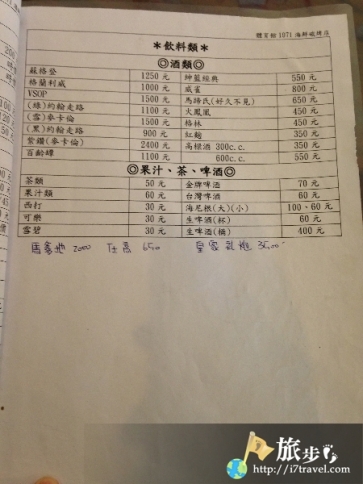 體育館 1971 海鮮碳烤店
＊飲料類＊
◎酒類◎
蘇格登 1250 元 紳藍經典 550 元
格蘭利威 1000 元 威雀 800 元
VSOP 1500 元 馬諦氏(好久不見) 650 元
(綠)約翰走路 1100 元 火鳳凰 450 元
(雪)麥卡倫 1500 元 格林 450 元
(黑)約翰走路 900 元 紅麴 350 元
紫鑽(麥卡倫) 2400 元 高粱酒 300c.c. 350 元
百齡罈 1500 元 600c.c. 550 元
◎果汁、茶、啤酒◎
茶類 50 元 金牌啤酒 70 元
果汁類 60 元 台灣啤酒 60 元
西打 30 元 海尼根(大)(小) 100、60 元
可樂 30 元 生啤酒(杯) 60 元
雪碧 30 元 生啤酒(桶) 400 元
2000 仕高 650 皇家
旅步
http://i7travel.com/